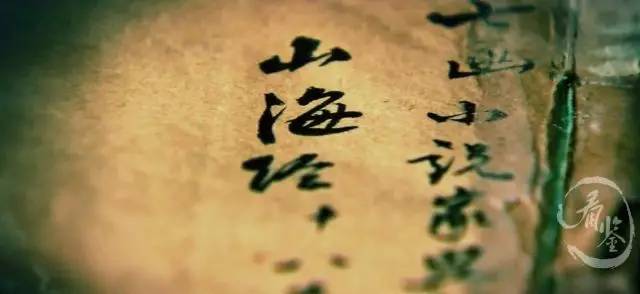 小说家
山海经十八
看鉴